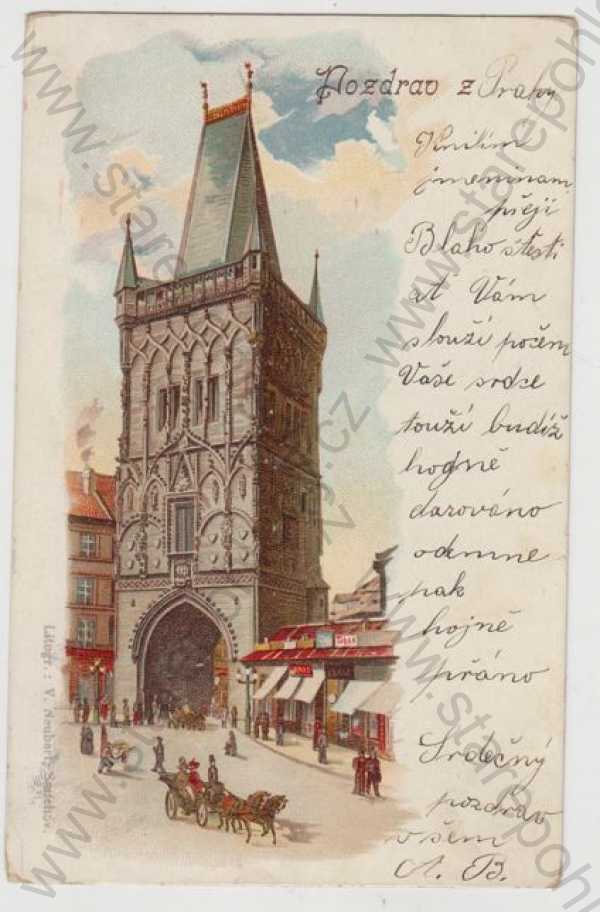 Pozdrav z Prahy
K milím
jmeninam
přeji
Blaho štestí
at Vám
slouží počem
Vaše srdce
touží budiž
hogně
darováno
odemne
pak
hojně
přáno
Srdečný
pozdrav
všem
A. B.
Litogr.: V. Neubert, Smíchov.
www.starepohledy.cz